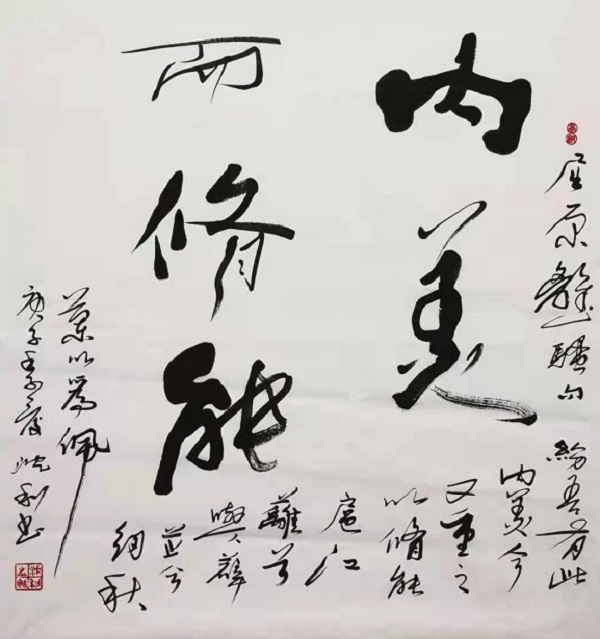 内美
而修能
屈原離騷句
紛吾有此
内美兮
又重之
以脩能
扈江
蘺與
與辟
芷兮
紉秋
蘭以為佩
庚子
書